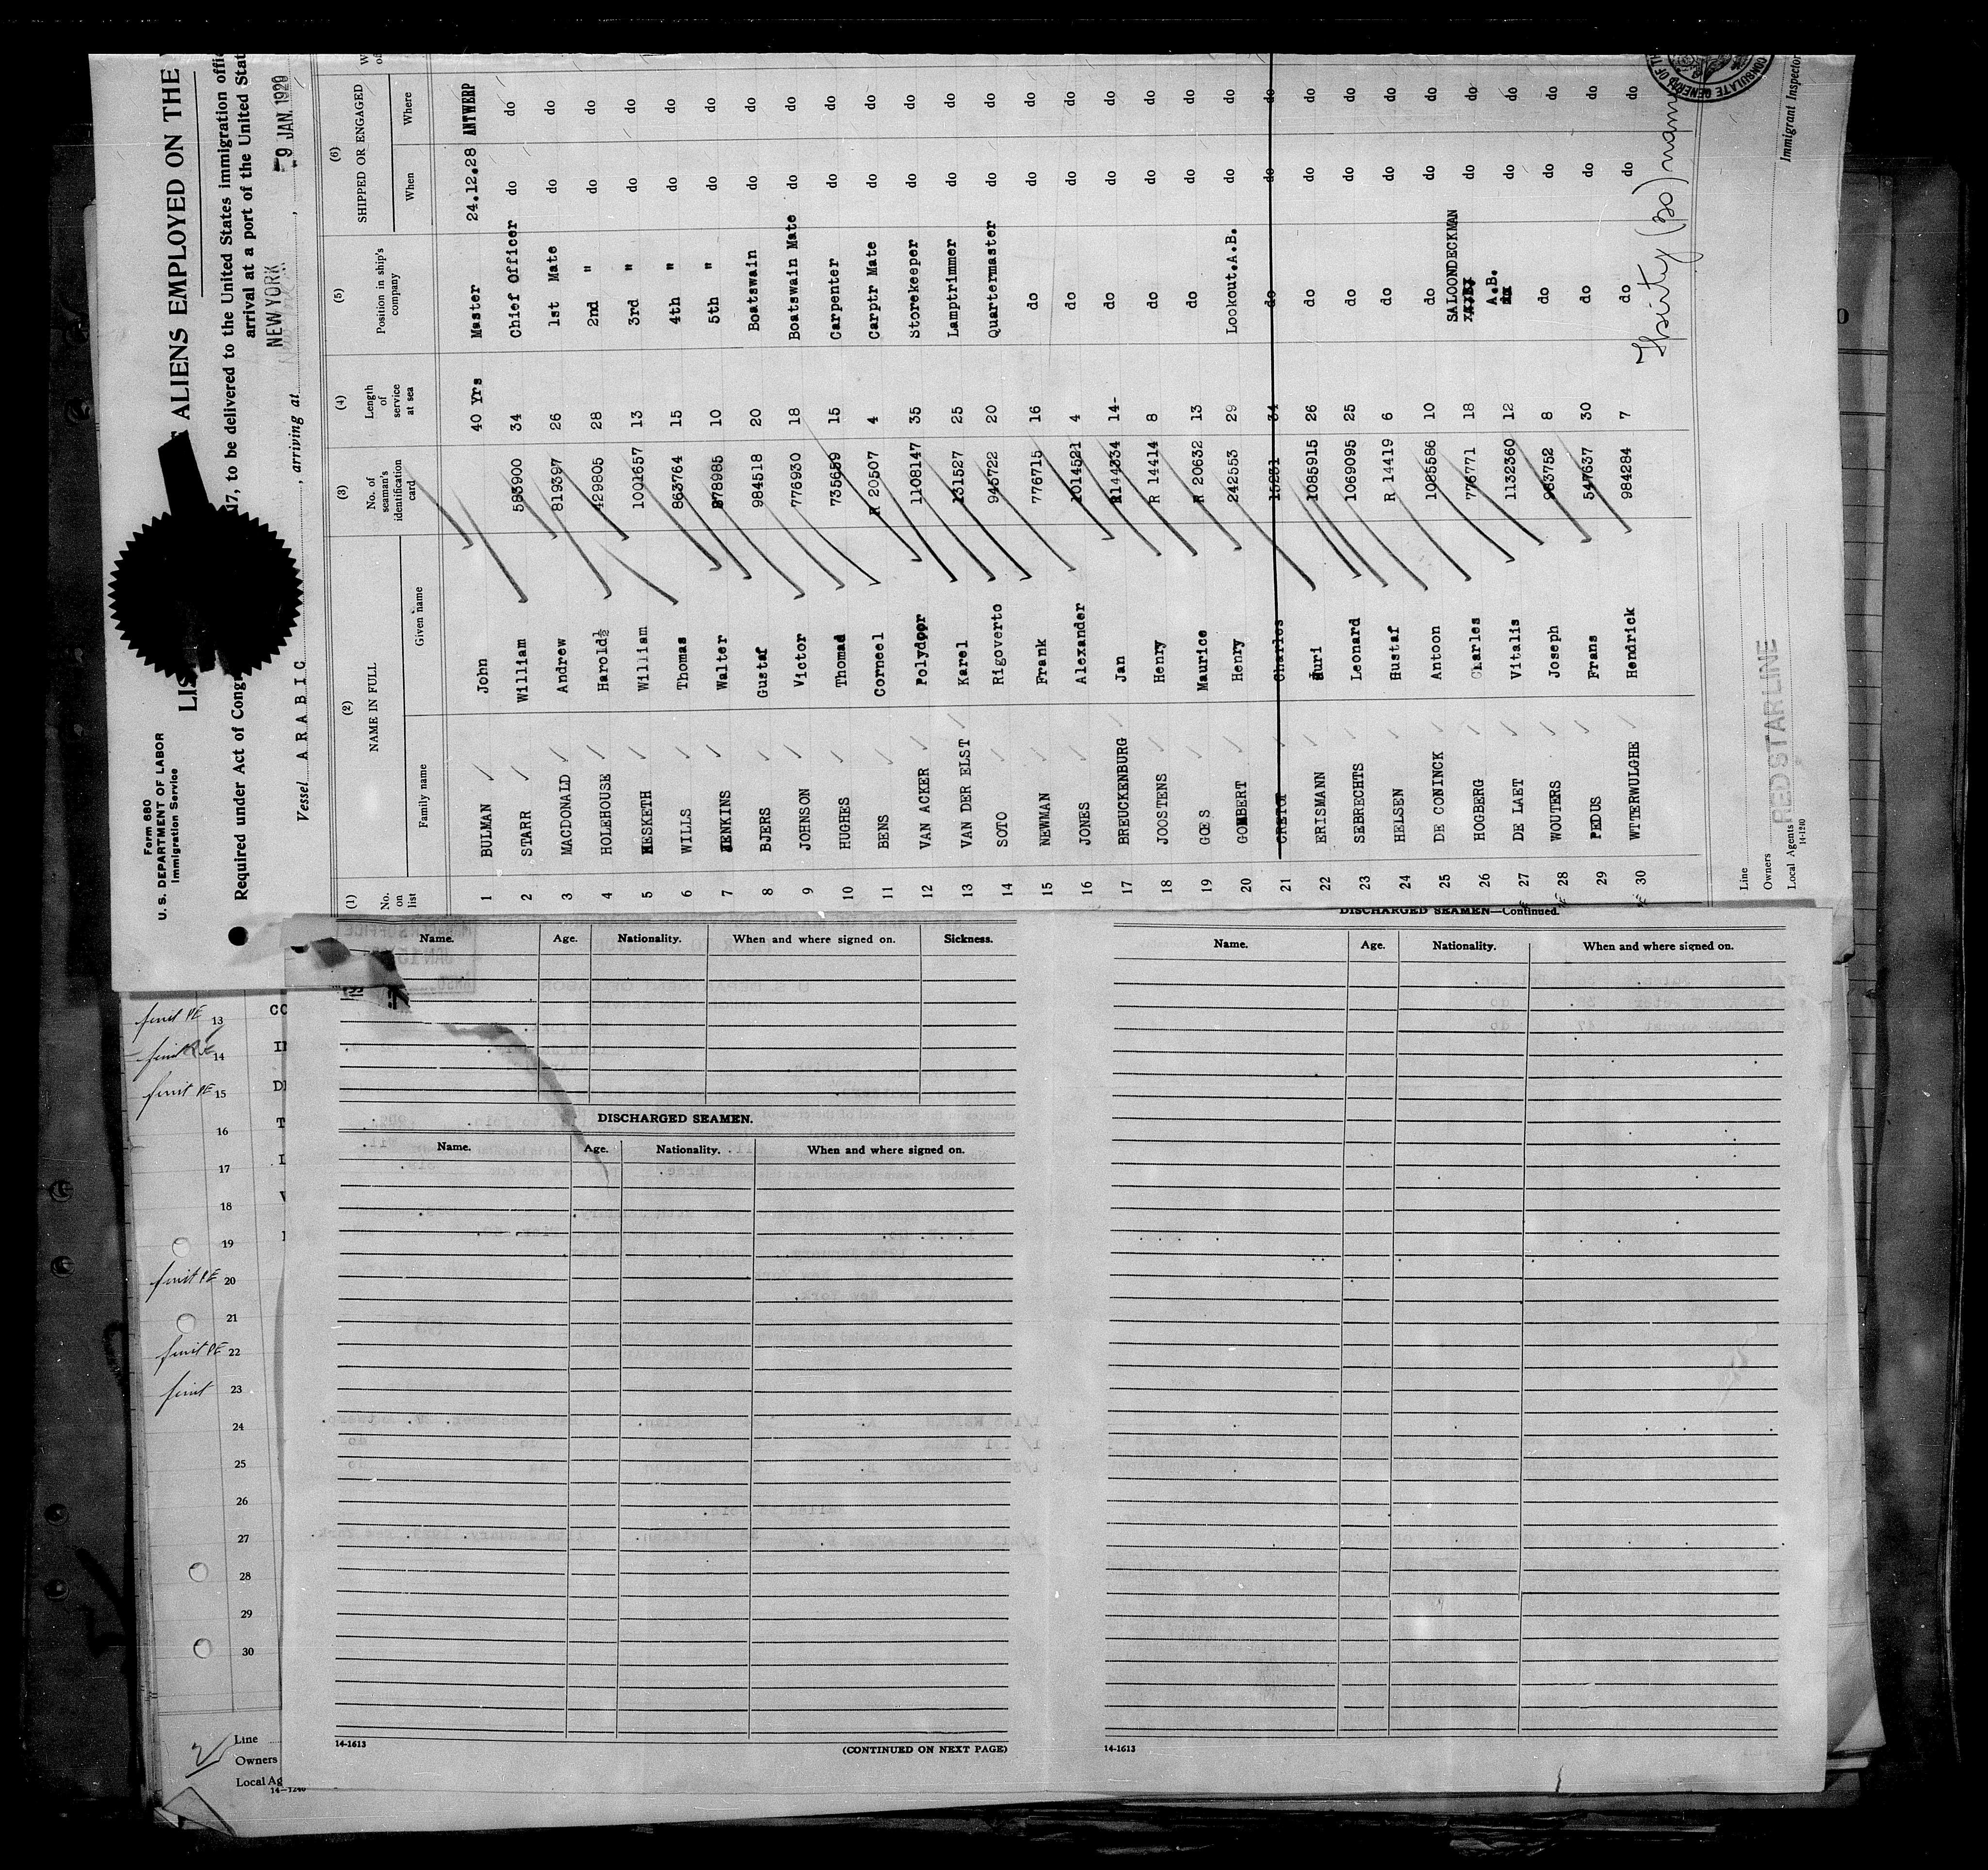 Form 680
U. S. DEPARTMENT OF LABOR
Immigration Service
ALIENS EMPLOYED ON THE
Required under Act of Cong
17, to be delivered to the United States immigration offi
arrival at a port of the United Stat
Vessel ARABIC, arriving at NEW YORK, 9 JAN. 1929
(1) (2) (3) (4) (5) (6)
No. on list NAME IN FULL No. of seaman's identification card Length of service at sea Position in ship's company SHIPPED OR ENGAGED
Family name Given name When Where
1 BULMAN John 40 Yrs Master 24.12.28 ANTWERP
2 STARR William 583900 34 Chief Officer do do
3 MACDONALD Andrew 819397 26 1st Mate do do
4 HOLEHOUSE Harold 429805 28 2nd " do do
5 HESKETH William 1001657 13 3rd " do do
6 WILLS Thomas 863764 15 4th " do do
7 JENKINS Walter 878985 10 5th " do do
8 BJERS Gustaf 984518 20 Boatswain do do
9 JOHNSON Victor 776930 18 Boatswain Mate do do
10 HUGHES Thomas 735659 15 Carpenter do do
11 BENS Corneel R 20507 4 Carptr Mate do do
12 VAN ACKER Polydoor 1108147 35 Storekeeper do do
13 VAN DER ELST Karel 131527 25 Lamptrimmer do do
14 SOTO Rigoverto 945722 20 Quartermaster do do
15 NEWMAN Frank 776715 16 do do do
16 JONES Alexander 1014521 4 do do do
17 BREUCKENBURG Jan 1144334 14- do do do
18 JOOSTENS Henry R 14414 8 do do do
19 GOES Maurice R 20632 13 do do do
20 GOMBERT Henry 242553 29 Lookout.A.B. do do
21 CRETOT Charles 15231 34 do do do
22 ERISMANN Juri 1085915 26 do do do
23 SEBRECHTS Leonard 1069095 25 do do do
24 HELSEN Gustaf R 14419 6 do do do
25 DE CONINCK Antoon 1085586 10 do do do
26 HOGBERG Charles 776771 18 SALOONDECKMAN do do
27 DE LAET Vitalis 1132360 12 A.B. do do
28 WOUTERS Joseph 983752 8 do do do
29 PEDUS Frans 547637 30 do do do
30 WITTERWULGHE Hendrick 984284 7 do do do
Thirty (30) namn
CONSULATE GENERAL OF
Immigrant Inspector
Line
Owners
Local Agents RED STAR LINE
14-1240
Name. Age. Nationality. When and where signed on. Sickness.
DISCHARGED SEAMEN.
Name. Age. Nationality. When and where signed on.
14-1613
(CONTINUED ON NEXT PAGE)
DISCHARGED SEAMEN—Continued.
Name. Age. Nationality. When and where signed on.
14-1613
13 CO
14 IN
15
16 T
17
18 V
19
20
21
22
23
24
25
26
27
28
29
30
Line
Owners
Local Ag
14-1240